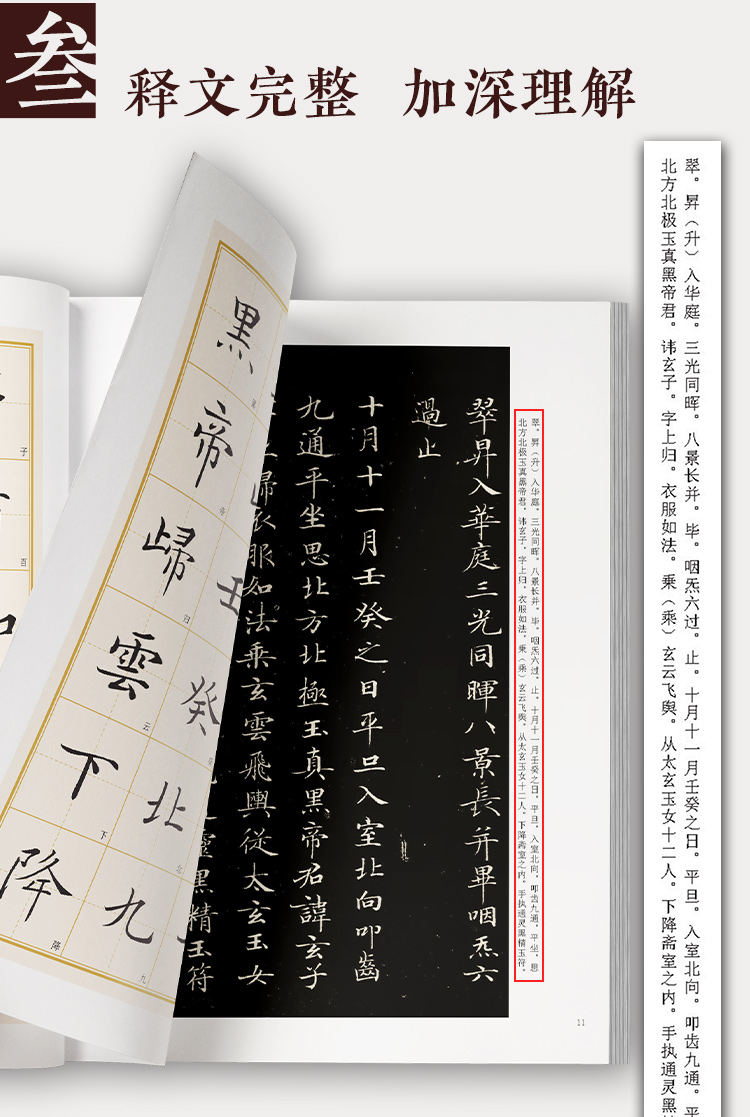 叁
释文完整 加深理解
翠。昇（升）入华庭。三光同晖。八景长并。毕。咽炁六过。止。十月十一月壬癸之日。平旦。入室北向。叩齿九通。平
北方北极玉真黑帝君。讳玄子。字上归。衣服如法。乘（乘）玄云飞舆。从太玄玉女十二人。下降斋室之内。手执通灵黑
翠。昇（升）入华庭。三光同晖。八景长并。毕。咽炁六过。止。十月十一月壬癸之日。平旦。入室北向。叩齿九通。平坐。思
北方北极玉真黑帝君。讳玄子。字上归。衣服如法。乘（乘）玄云飞舆。从太玄玉女十二人。下降斋室之内。手执通灵黑精玉符。
翠昇入華庭三光同暉八景長并畢咽炁六
過止
十月十一月壬癸之日平旦入室北向叩齒
九通平坐思北方北極玉真黑帝君諱玄子
歸衣服如法乘玄雲飛輿從太玄玉女
靈黑精玉符
黑帝歸雲下降
归
云
下
降
壬癸北九
北
九
子
百
11